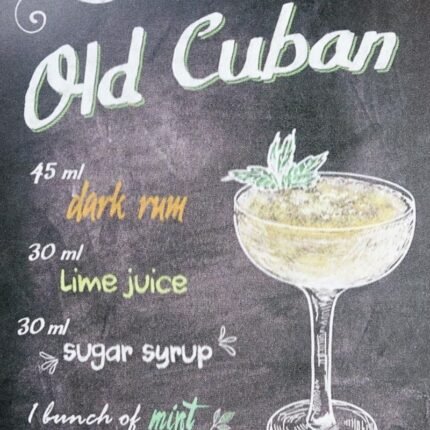 Old Cuban
45 ml
dark rum
30 ml
Lime juice
30 ml
sugar syrup
1 bunch of mint